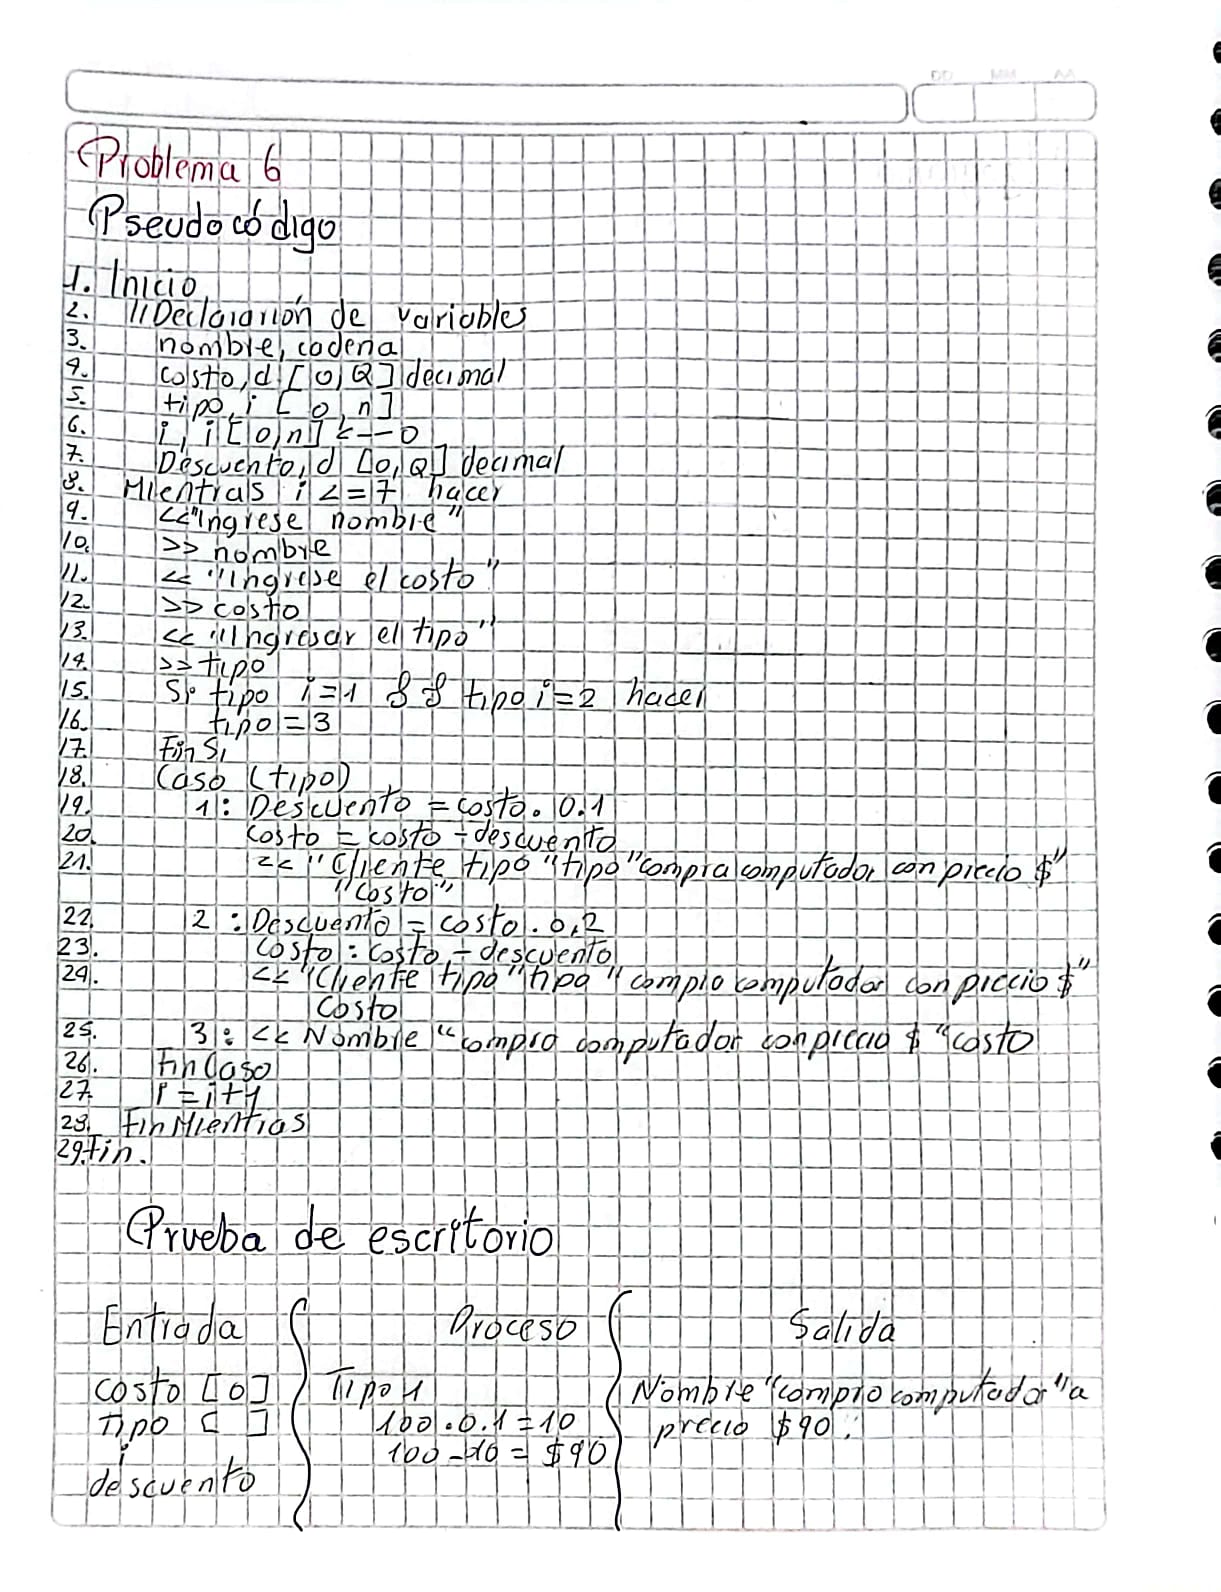 DD MM AA
Problema 6
Pseudocódigo
1. Inicio
2. //Declaración de variables
3. nombre, cadena
4. costo, d [0, Q] decimal
5. tipo, i [0, n]
6. i, i [0, n] <--0
7. Descuento, d [0, Q] decimal
8. Mientras i <= 7 hacer
9. <<"Ingrese nombre"
10. >> nombre
11. << "Ingrese el costo"
12. >> costo
13. << "Ingresar el tipo"
14. >> tipo
15. Si tipo i=1 && tipo i=2 hacer
16. tipo = 3
17. Fin Si
18. Caso (tipo)
19. 1: Descuento = costo. 0.1
20. costo = costo - descuento
21. << "Cliente tipo "tipo" compra computador con precio $"
"costo"
22. 2 : Descuento = costo . 0,2
23. costo : costo - descuento
24. << "Cliente tipo "tipo" compro computador con precio $"
costo
25. 3: << Nombre "compro computador con precio $ "costo
26. Fin Caso
27. i = i+1
28. Fin Mientras
29. Fin.
Prueba de escritorio
Entrada Proceso Salida
costo [0] Tipo 1 Nombre "compro computador" a
Tipo [ ] 100 . 0.1 = 10 precio $90.
i 100 - 10 = $90
descuento